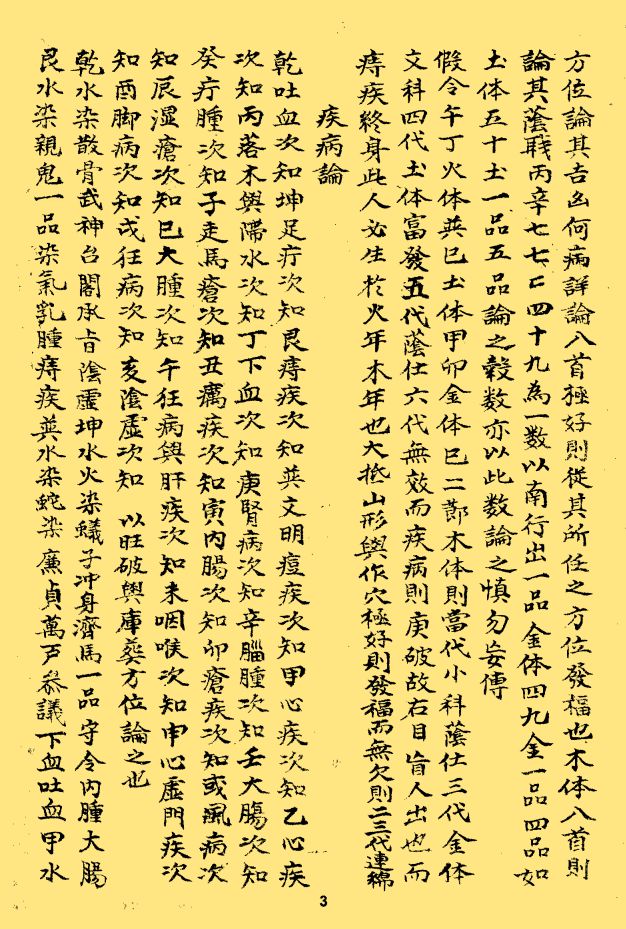 方位論其吉凶何病詳論八首極好則從其所任之方位發福也木体八首則
論其蔭戰丙辛七七乙四十九為一数以南行出一品金体四九金一品四品如
土体五十土一品五品論之穀数亦以此数論之慎勿妄傳
假令午丁火体巽巳土体甲卯金体巳二節木体則當代小科蔭仕三代金体
文科四代土体富發五代蔭仕六代無效而疾病則庚破故右目盲人出也而
痔疾終身此人必生於火年木年也大抵山形與作穴極好則發福而無欠則二三代連綿
疾病論
乾吐血次知坤足疔次知艮痔疾次知巽文明痘疾次知甲心疾次知乙心疾
次知丙落木與滯水次知丁下血次知庚腎病次知辛腦腫次知壬大腸次知
癸疔腫次知子走馬瘡次知丑癘疾次知寅內腸次知卯瘡疾次知或風病次
知辰湿瘡次知巳大腫次知午狂病與肝疾次知未咽喉次知申心虛門疾次
知酉脚病次知戌狂病次知亥陰虛次知 以旺破與庫葬方位論之也
乾水染散骨武神台閣承旨陰靈坤水火染蟻子冲身濟馬一品守令內腫大腸
艮水染親鬼一品染氣乳腫痔疾巽水染蛇染廉貞萬戶參議下血吐血甲水
3